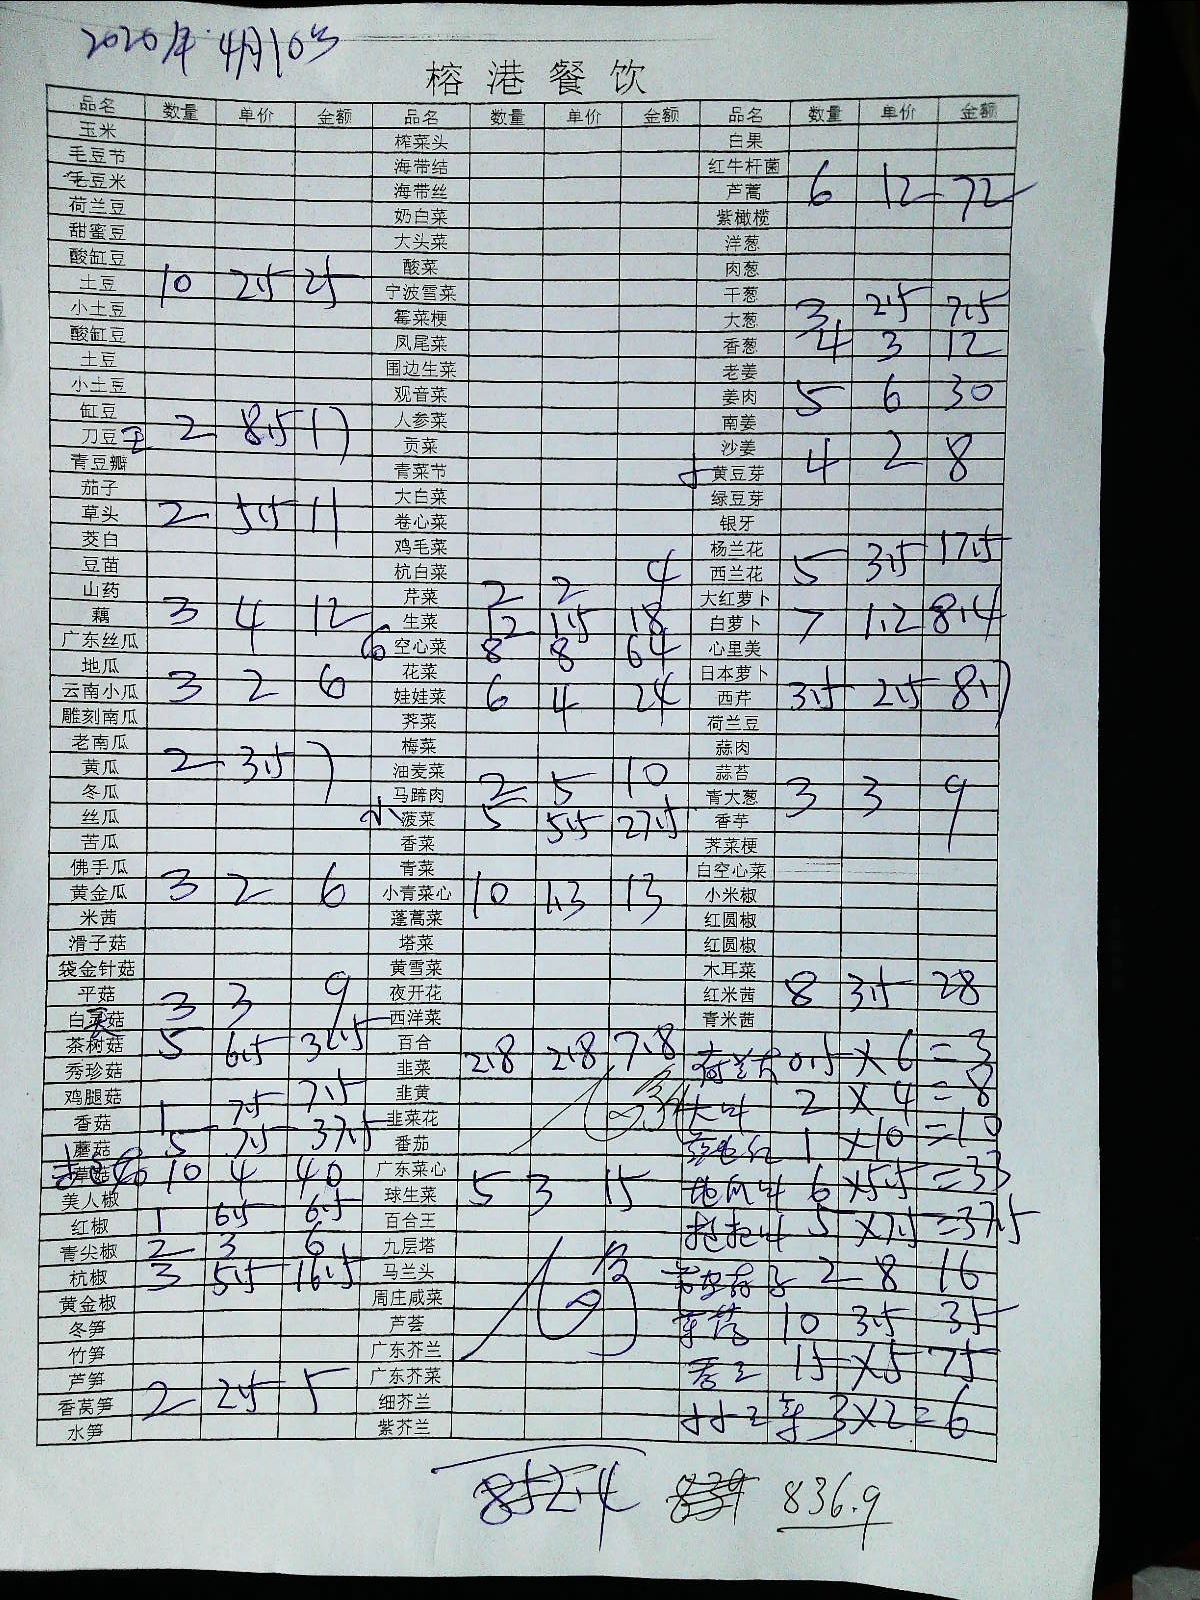 2020年4月10号
榕港餐饮
品名 数量 单价 金额 品名 数量 单价 金额 品名 数量 单价 金额
玉米 榨菜头 白果
毛豆节 海带结 红牛杆菌
毛豆米 海带丝 芦蒿 6 12 72
荷兰豆 奶白菜 紫橄榄
甜蜜豆 大头菜 洋葱
酸缸豆 酸菜 肉葱
土豆 10 2.5 25 宁波雪菜 干葱
小土豆 霉菜梗 大葱 3 2.5 7.5
酸缸豆 凤尾菜 香葱 4 3 12
土豆 围边生菜 老姜
小土豆 观音菜 姜肉 5 6 30
缸豆 人参菜 南姜
刀豆王 2 8.5 17 贡菜 沙姜
青豆瓣 青菜节 黄豆芽 4 2 8
茄子 大白菜 绿豆芽
草头 2 5.5 11 卷心菜 银牙
茭白 鸡毛菜 杨兰花
豆苗 杭白菜 西兰花 5 3.5 17.5
山药 芹菜 2 2 4 大红萝卜
藕 3 4 12 生菜 12 1.5 18 白萝卜 7 1.2 8.4
广东丝瓜 空心菜 8 8 64 心里美
地瓜 花菜 日本萝卜
云南小瓜 3 2 6 娃娃菜 6 4 24 西芹 3.5 2.5 8.7
雕刻南瓜 荠菜 荷兰豆
老南瓜 梅菜 蒜肉
黄瓜 2 3.5 7 油麦菜 蒜苔
冬瓜 马蹄肉 2 5 10 青大葱 3 3 9
丝瓜 小菠菜 5 5.5 27.5 香芋
苦瓜 香菜 荠菜梗
佛手瓜 青菜 白空心菜
黄金瓜 3 2 6 小青菜心 10 1.3 13 小米椒
米茜 蓬蒿菜 红圆椒
滑子菇 塔菜 红圆椒
袋金针菇 黄雪菜 木耳菜
平菇 3 3 9 夜开花 红米茜 8 3.5 28
白灵菇 西洋菜 青米茜
茶树菇 5 6.5 32.5 百合 荷兰豆 0.5 × 6 = 3
秀珍菇 韭菜 2.8 2.8 7.8
鸡腿菇 韭黄 大叶 2 × 4 = 8
香菇 1 7.5 7.5 韭菜花 1 × 10 = 10
蘑菇 5 7.5 37.5 番茄
草菇 10 4 40 广东菜心 地瓜叶 6 × 5.5 = 33
美人椒 球生菜 5 3 15
红椒 1 6.5 6.5 百合王 5 × 7.5 = 37.5
青尖椒 2 3 6 九层塔
杭椒 3 5.5 16.5 马兰头 2 8 16
黄金椒 周庄咸菜
冬笋 芦荟 10 3.5 35
竹笋 广东芥兰
芦笋 广东芥菜 15 × 5 75
香莴笋 2 2.5 5 细芥兰 3 × 2 = 6
水笋 紫芥兰
852.4 839 836.9